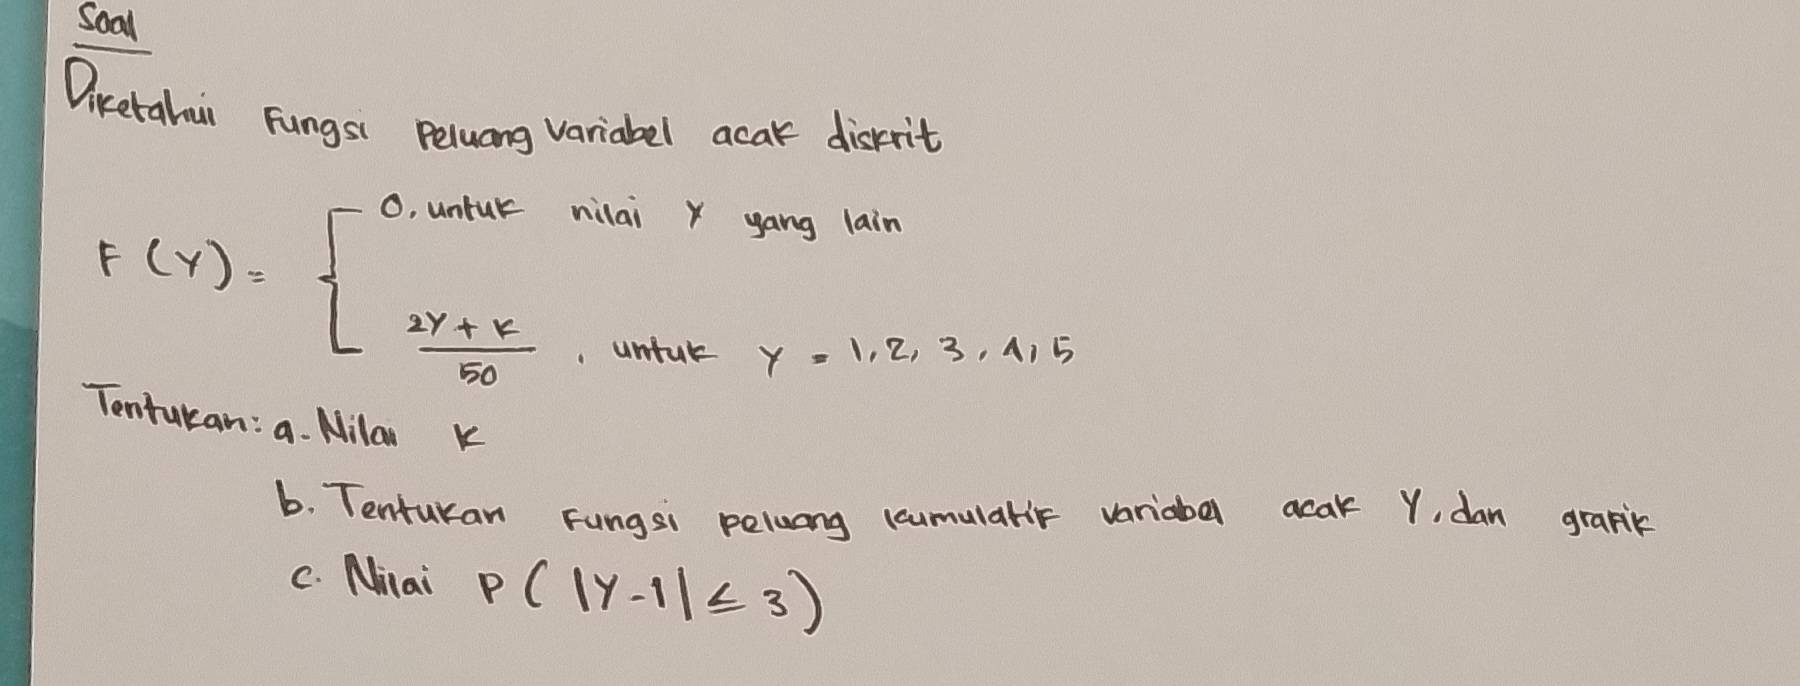 Soal
Diketahui Fungsi Peluang Variabel acak diskrit
F(Y) = { 0, untuk nilai Y yang lain
2Y + K / 50 , untuk Y = 1, 2, 3, 4, 5
Tentukan: a. Nilai K
b. Tentukan Fungsi peluang kumulatif variabel acak Y, dan grafik
c. Nilai P ( |Y - 1| ≤ 3 )